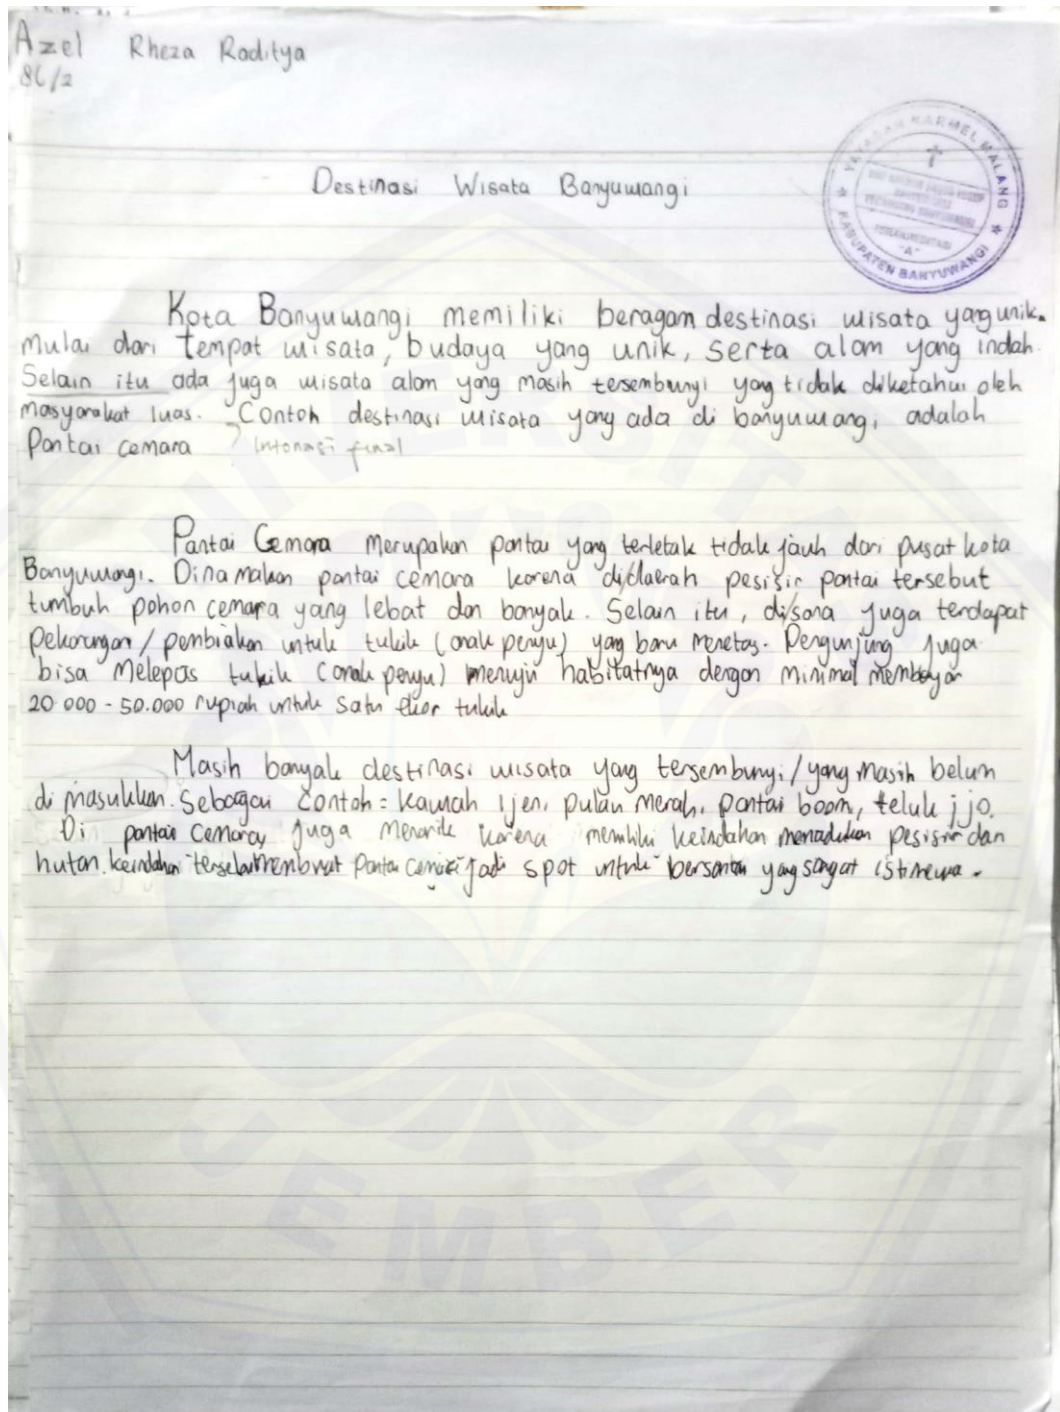 Azel Rheza Raditya
8C/2
YAYASAN KARMEL MALANG
TERAKREDITASI
"A"
KABUPATEN BANYUWANGI
Destinasi Wisata Banyuwangi
Kota Banyuwangi memiliki beragam destinasi wisata yang unik.
Mulai dari tempat wisata, budaya yang unik, serta alam yang indah.
Selain itu ada juga wisata alam yang masih tersembunyi yang tidak diketahui oleh
masyarakat luas. Contoh destinasi wisata yang ada di banyuwangi adalah
Pantai cemara
intonasi final
Pantai Cemara merupakan pantai yang terletak tidak jauh dari pusat kota
Banyuwangi. Dinamakan pantai cemara karena di/daerah pesisir pantai tersebut
tumbuh pohon cemara yang lebat dan banyak. Selain itu, di/sana juga terdapat
Pekarangan / pembiakan untuk tukik (anak penyu) yang baru menetas. Pengunjung juga
bisa Melepas tukik (anak penyu) menuju habitatnya dengan minimal membayar
20.000 - 50.000 rupiah untuk satu ekor tukik
Masih banyak destinasi wisata yang tersembunyi / yang masih belum
di masukkan. Sebagai contoh = kawah ijen, pulau merah, pantai boom, teluk ijo.
Di pantai Cemara juga menarik karena memiliki keindahan memadukan pesisir dan
hutan. keindahan membuat Pantai jadi spot untuk bersantai yang sangat istimewa.
UNIVERSITAS
JEMBER